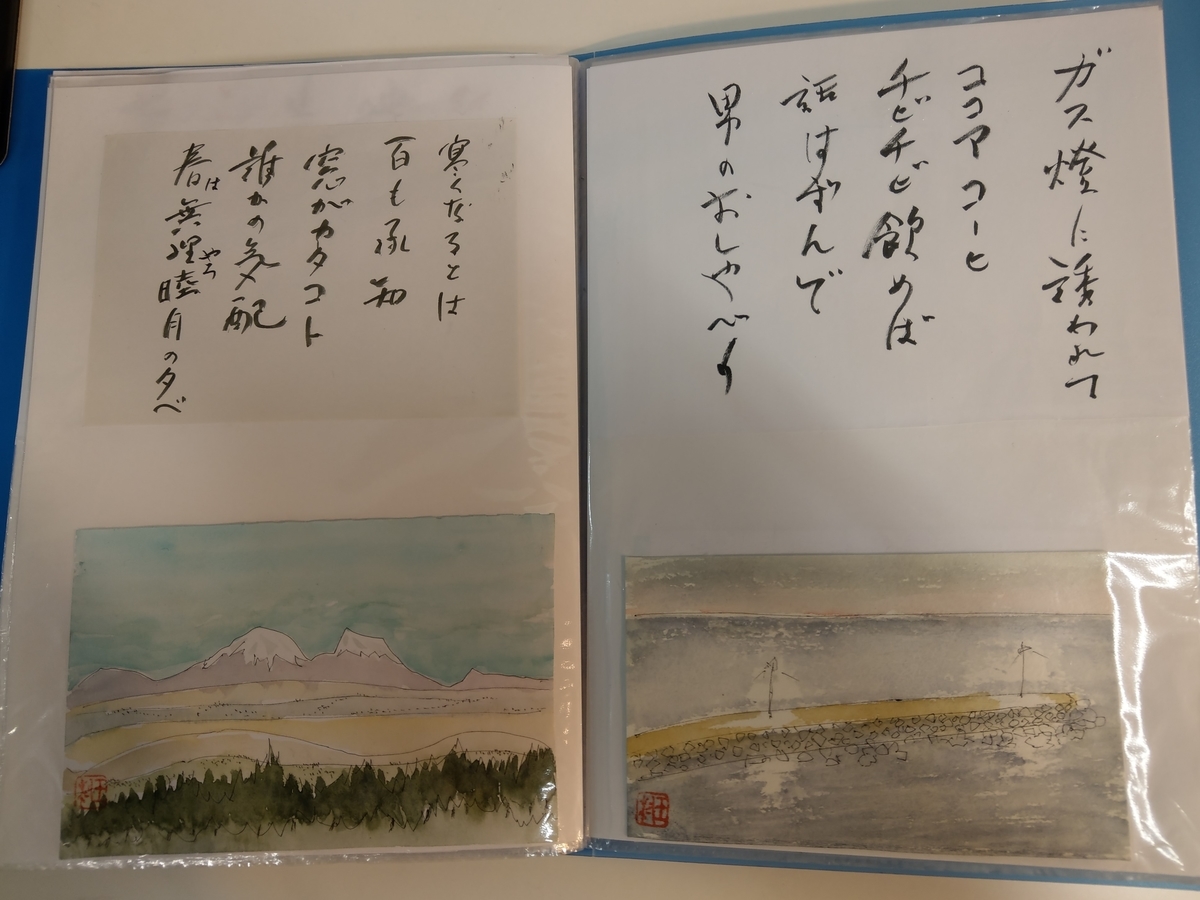 ガス燈に誘われて
ココアコーヒ
チビチビ飲めば
話はずんで
男のおしゃべり
寒くなるとは
百も承知
窓がカタコト
誰かの気配
春は無理やろ睦月の夕べ